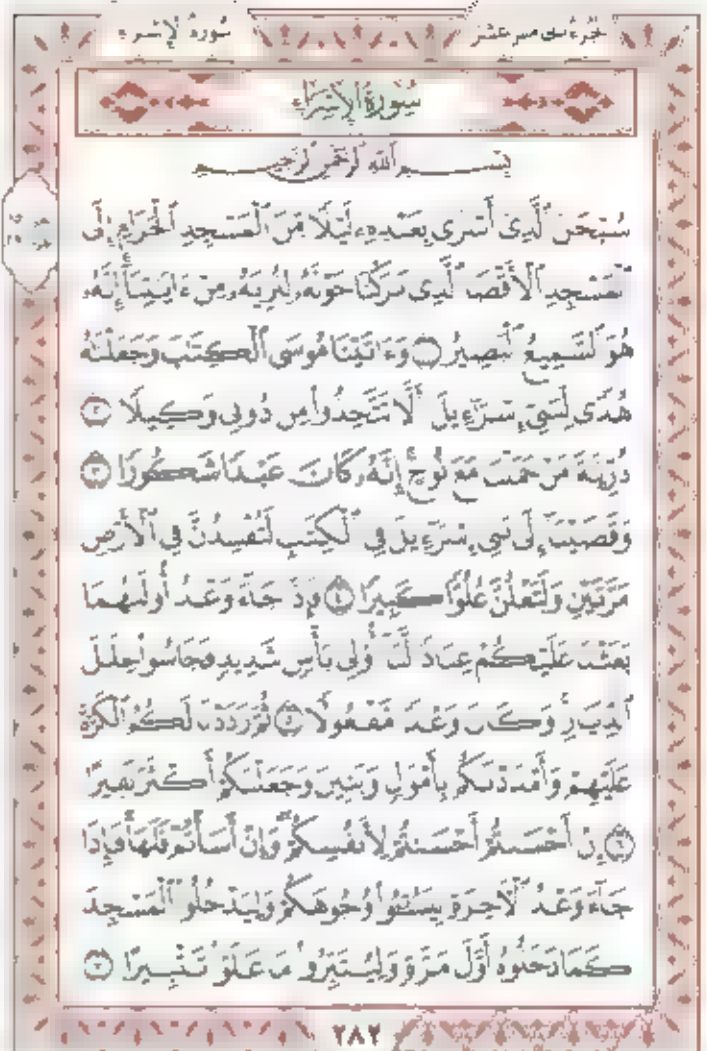 سُورَةُ الإِسْرَاءِ الجُزءُ الخَامِسَ عَشَرَ
سُورَةُ الإِسْرَاءِ
بِسْمِ ٱللَّهِ ٱلرَّحْمَٰنِ ٱلرَّحِيمِ
سُبْحَٰنَ ٱلَّذِىٓ أَسْرَىٰ بِعَبْدِهِۦ لَيْلًا مِّنَ ٱلْمَسْجِدِ ٱلْحَرَامِ إِلَى
ٱلْمَسْجِدِ ٱلْأَقْصَا ٱلَّذِى بَٰرَكْنَا حَوْلَهُۥ لِنُرِيَهُۥ مِنْ ءَايَٰتِنَآ إِنَّهُۥ
هُوَ ٱلسَّمِيعُ ٱلْبَصِيرُ ١ وَءَاتَيْنَا مُوسَى ٱلْكِتَٰبَ وَجَعَلْنَٰهُ
هُدًى لِّبَنِىٓ إِسْرَٰٓءِيلَ أَلَّا تَتَّخِذُوا۟ مِن دُونِى وَكِيلًا ٢
ذُرِّيَّةَ مَنْ حَمَلْنَا مَعَ نُوحٍ إِنَّهُۥ كَانَ عَبْدًا شَكُورًا ٣
وَقَضَيْنَآ إِلَىٰ بَنِىٓ إِسْرَٰٓءِيلَ فِى ٱلْكِتَٰبِ لَتُفْسِدُنَّ فِى ٱلْأَرْضِ
مَرَّتَيْنِ وَلَتَعْلُنَّ عُلُوًّا كَبِيرًا ٤ فَإِذَا جَآءَ وَعْدُ أُولَىٰهُمَا
بَعَثْنَا عَلَيْكُمْ عِبَادًا لَّنَآ أُو۟لِى بَأْسٍ شَدِيدٍ فَجَاسُوا۟ خِلَٰلَ
ٱلدِّيَارِ وَكَانَ وَعْدًا مَّفْعُولًا ٥ ثُمَّ رَدَدْنَا لَكُمُ ٱلْكَرَّةَ
عَلَيْهِمْ وَأَمْدَدْنَٰكُم بِأَمْوَٰلٍ وَبَنِينَ وَجَعَلْنَٰكُمْ أَكْثَرَ نَفِيرًا
٦ إِنْ أَحْسَنتُمْ أَحْسَنتُمْ لِأَنفُسِكُمْ وَإِنْ أَسَأْتُمْ فَلَهَا فَإِذَا
جَآءَ وَعْدُ ٱلْءَاخِرَةِ لِيَسُۥٓـُٔوا۟ وُجُوهَكُمْ وَلِيَدْخُلُوا۟ ٱلْمَسْجِدَ
كَمَا دَخَلُوهُ أَوَّلَ مَرَّةٍ وَلِيُتَبِّرُوا۟ مَا عَلَوْا۟ تَتْبِيرًا ٧
٢٨٢